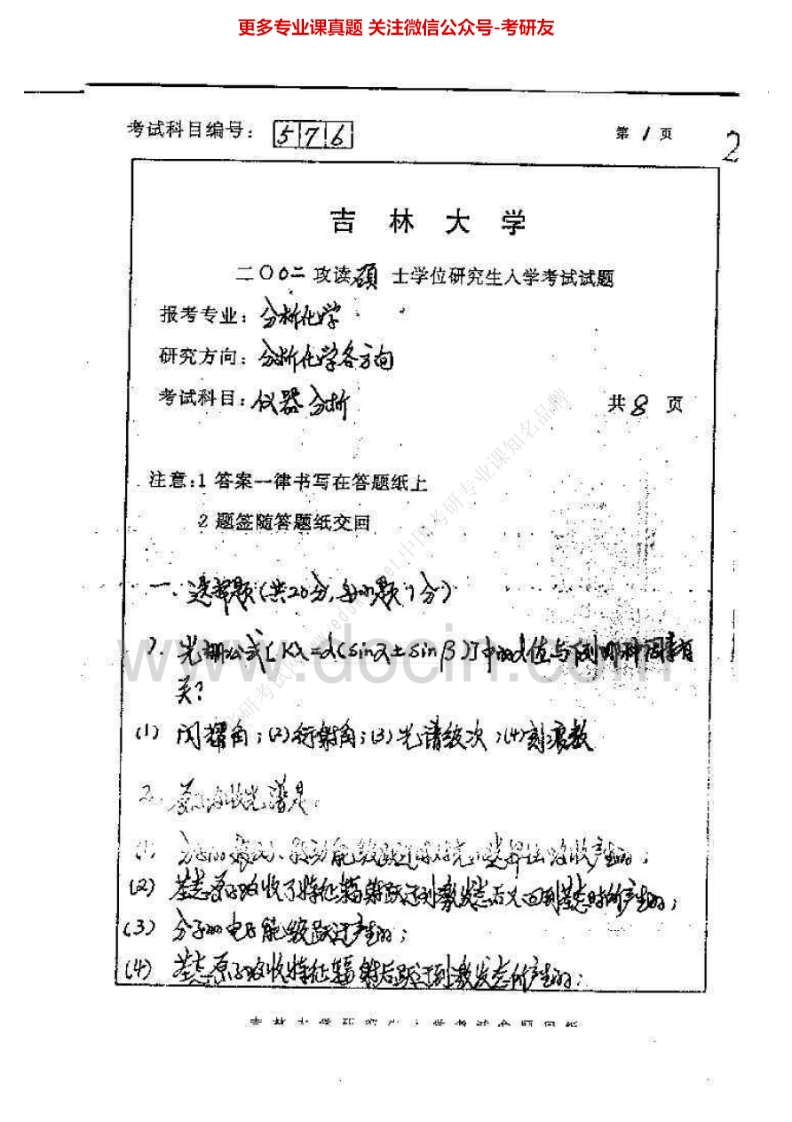 更多专业课真题 关注微信公众号-考研友
考试科目编号： 576
第 1 页
2
吉 林 大 学
二〇〇二 攻读硕 士学位研究生入学考试试题
报考专业：分析化学
研究方向：分析化学各方向
考试科目：仪器分析
共 8 页
注意：1 答案一律书写在答题纸上
2 题签随答题纸交回
一、选择题（共20分，每小题1分）
1. 光栅公式[Kλ=d(sinα±sinβ)]中的d值与下列哪种因素有
关？
(1) 闪耀角；(2)衍射角；(3)光谱级次；(4)刻痕数
2. 吸收光谱是
(1) 分子的振动、转动能级跃迁时对光的选择性吸收产生的；
(2) 基态原子吸收了特征辐射跃迁到激发态后又回到基态时所产生的；
(3) 分子的电子能级跃迁产生的；
(4) 基态原子吸收特征辐射后跃迁到激发态所产生的；
www.docin.com